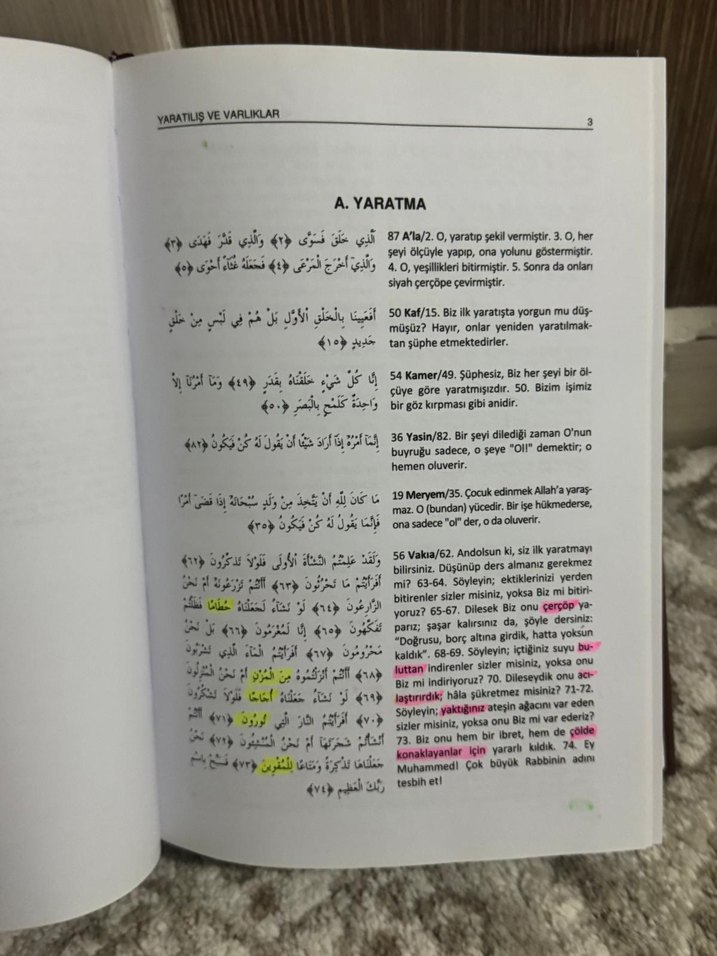 YARATILIŞ VE VARLIKLAR
3
A. YARATMA
اَلَّذِي خَلَقَ فَسَوَّى ﴿٢﴾ وَالَّذِي قَدَّرَ فَهَدَى ﴿٣﴾
وَالَّذِٓي اَخْرَجَ الْمَرْعَى ﴿٤﴾ فَجَعَلَهُ غُثَٓاءً اَحْوَى ﴿٥﴾
87 A’la/2. O, yaratıp şekil vermiştir. 3. O, her
şeyi ölçüyle yapıp, ona yolunu göstermiştir.
4. O, yeşillikleri bitirmiştir. 5. Sonra da onları
siyah çerçöpe çevirmiştir.
اَفَعَيِينَا بِالْخَلْقِ الْاَوَّلِ بَلْ هُمْ فِي لَبْسٍ مِنْ خَلْقٍ
جَدِيدٍ ﴿١٥﴾
50 Kaf/15. Biz ilk yaratışta yorgun mu düş-
müşüz? Hayır, onlar yeniden yaratılmak-
tan şüphe etmektedirler.
اِنَّا كُلَّ شَيْءٍ خَلَقْنَاهُ بِقَدَرٍ ﴿٤٩﴾ وَمَٓا اَمْرُنَٓا اِلَّا
وَاحِدَةٌ كَلَمْحٍ بِالْبَصَرِ ﴿٥٠﴾
54 Kamer/49. Şüphesiz, Biz her şeyi bir öl-
çüye göre yaratmışızdır. 50. Bizim işimiz
bir göz kırpması gibi anidir.
اِنَّمَٓا اَمْرُهُٓ اِذَٓا اَرَادَ شَيْئًا اَنْ يَقُولَ لَهُ كُنْ فَيَكُونُ ﴿٨٢﴾
36 Yasin/82. Bir şeyi dilediği zaman O’nun
buyruğu sadece, o şeye "Ol!" demektir; o
hemen oluverir.
مَا كَانَ لِلّٰهِ اَنْ يَتَّخِذَ مِنْ وَلَدٍ سُبْحَانَهُ اِذَا قَضَٓى اَمْرًا
فَاِنَّمَا يَقُولُ لَهُ كُنْ فَيَكُونُ ﴿٣٥﴾
19 Meryem/35. Çocuk edinmek Allah’a yaraş-
maz. O (bundan) yücedir. Bir işe hükmederse,
ona sadece "ol" der, o da oluverir.
وَلَقَدْ عَلِمْتُمُ النَّشْاَةَ الْاُولَى فَلَوْلَا تَذَكَّرُونَ ﴿٦٢﴾
اَفَرَاَيْتُمْ مَا تَحْرُثُونَ ﴿٦٣﴾ ءَاَنْتُمْ تَزْرَعُونَهُٓ اَمْ نَحْنُ
الزَّارِعُونَ ﴿٦٤﴾ لَوْ نَشَٓاءُ لَجَعَلْنَاهُ حُطَامًا فَظَلْتُمْ
تَفَكَّهُونَ ﴿٦٥﴾ اِنَّا لَمُغْرَمُونَ ﴿٦٦﴾ بَلْ نَحْنُ
مَحْرُومُونَ ﴿٦٧﴾ اَفَرَاَيْتُمُ الْمَٓاءَ الَّذِي تَشْرَبُونَ
﴿٦٨﴾ ءَاَنْتُمْ اَنْزَلْتُمُوهُ مِنَ الْمُزْنِ اَمْ نَحْنُ الْمُنْزِلُونَ
﴿٦٩﴾ لَوْ نَشَٓاءُ جَعَلْنَاهُ اُجَاجًا فَلَوْلَا تَشْكُرُونَ
﴿٧٠﴾ اَفَرَاَيْتُمُ النَّارَ الَّتِي تُورُونَ ﴿٧١﴾ ءَاَنْتُمْ
اَنْشَاْتُمْ شَجَرَتَهَٓا اَمْ نَحْنُ الْمُنْشِؤُنَ ﴿٧٢﴾ نَحْنُ
جَعَلْنَاهَا تَذْكِرَةً وَمَتَاعًا لِلْمُقْوِينَ ﴿٧٣﴾ فَسَبِّحْ بِاسْمِ
رَبِّكَ الْعَظِيمِ ﴿٧٤﴾
56 Vakıa/62. Andolsun ki, siz ilk yaratmayı
bilirsiniz. Düşünüp ders almanız gerekmez
mi? 63-64. Söyleyin; ektiklerinizi yerden
bitirenler sizler misiniz, yoksa Biz mi bitiri-
yoruz? 65-67. Dilesek Biz onu çerçöp ya-
parız; şaşar kalırsınız da, şöyle dersiniz:
"Doğrusu, borç altına girdik, hatta yoksun
kaldık". 68-69. Söyleyin; içtiğiniz suyu bu-
luttan indirenler sizler misiniz, yoksa onu
Biz mi indiriyoruz? 70. Dileseydik onu acı-
laştırırdık; hâla şükretmez misiniz? 71-72.
Söyleyin; yaktığınız ateşin ağacını var eden
sizler misiniz, yoksa onu Biz mi var ederiz?
73. Biz onu hem bir ibret, hem de çölde
konaklayanlar için yararlı kıldık. 74. Ey
Muhammed! Çok büyük Rabbinin adını
tesbih et!